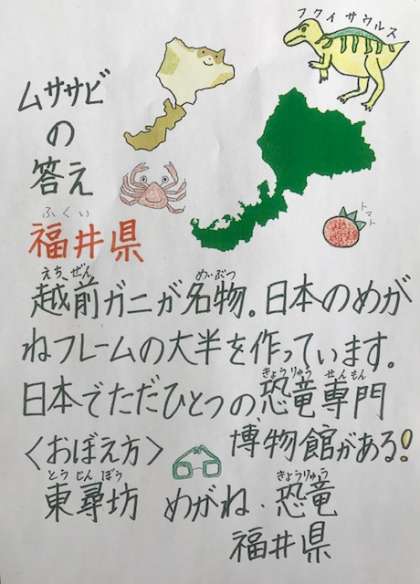 フクイサウルス
ムササビ
の
答え
ふくい
福井県
トマト
えちぜん めいぶつ
越前ガニが名物。日本のめが
ねフレームの大半を作っています。
きょうりゅう せんもん
日本でただひとつの恐竜専門
〈おぼえ方〉 博物館がある!
とうじんぼう きょうりゅう
東尋坊 めがね・恐竜
福井県